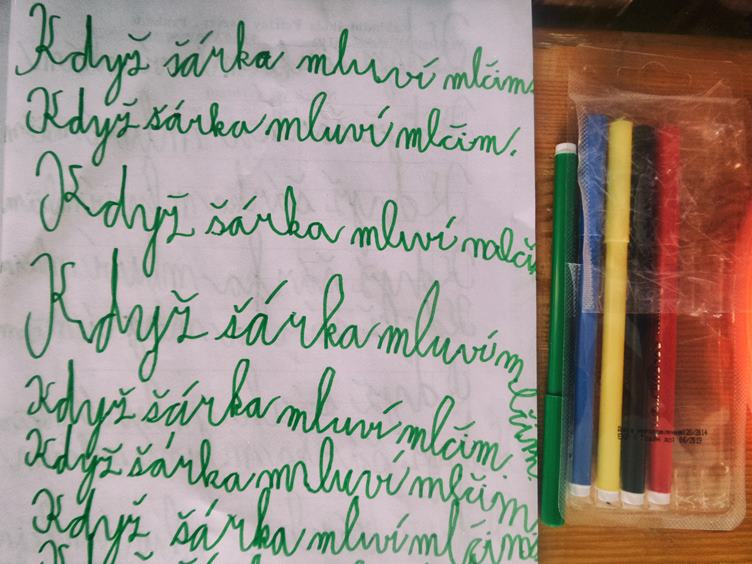 Když šárka mluví mlčím
Když šárka mluví mlčím.
Když šárka mluví
Když šárka mluví mlčím.
Když šárka mluví mlčím
Když šárka mluví mlčím
Když šárka mluví mlčím
Když šárka
06/2019